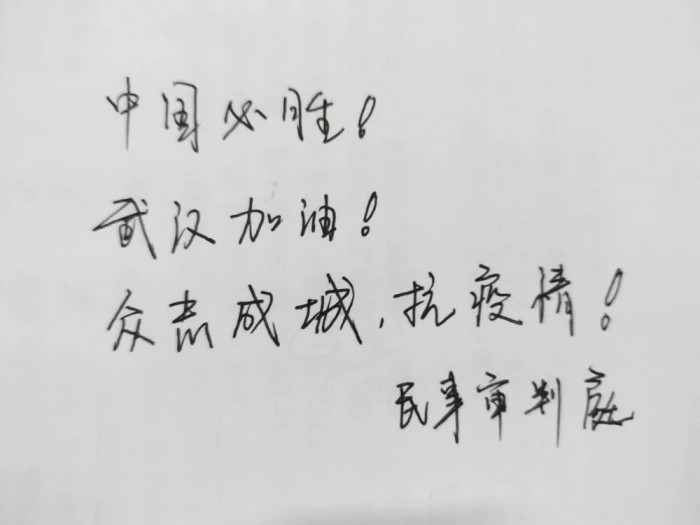 中国必胜!
武汉加油!
众志成城,抗疫情!
民事审判庭